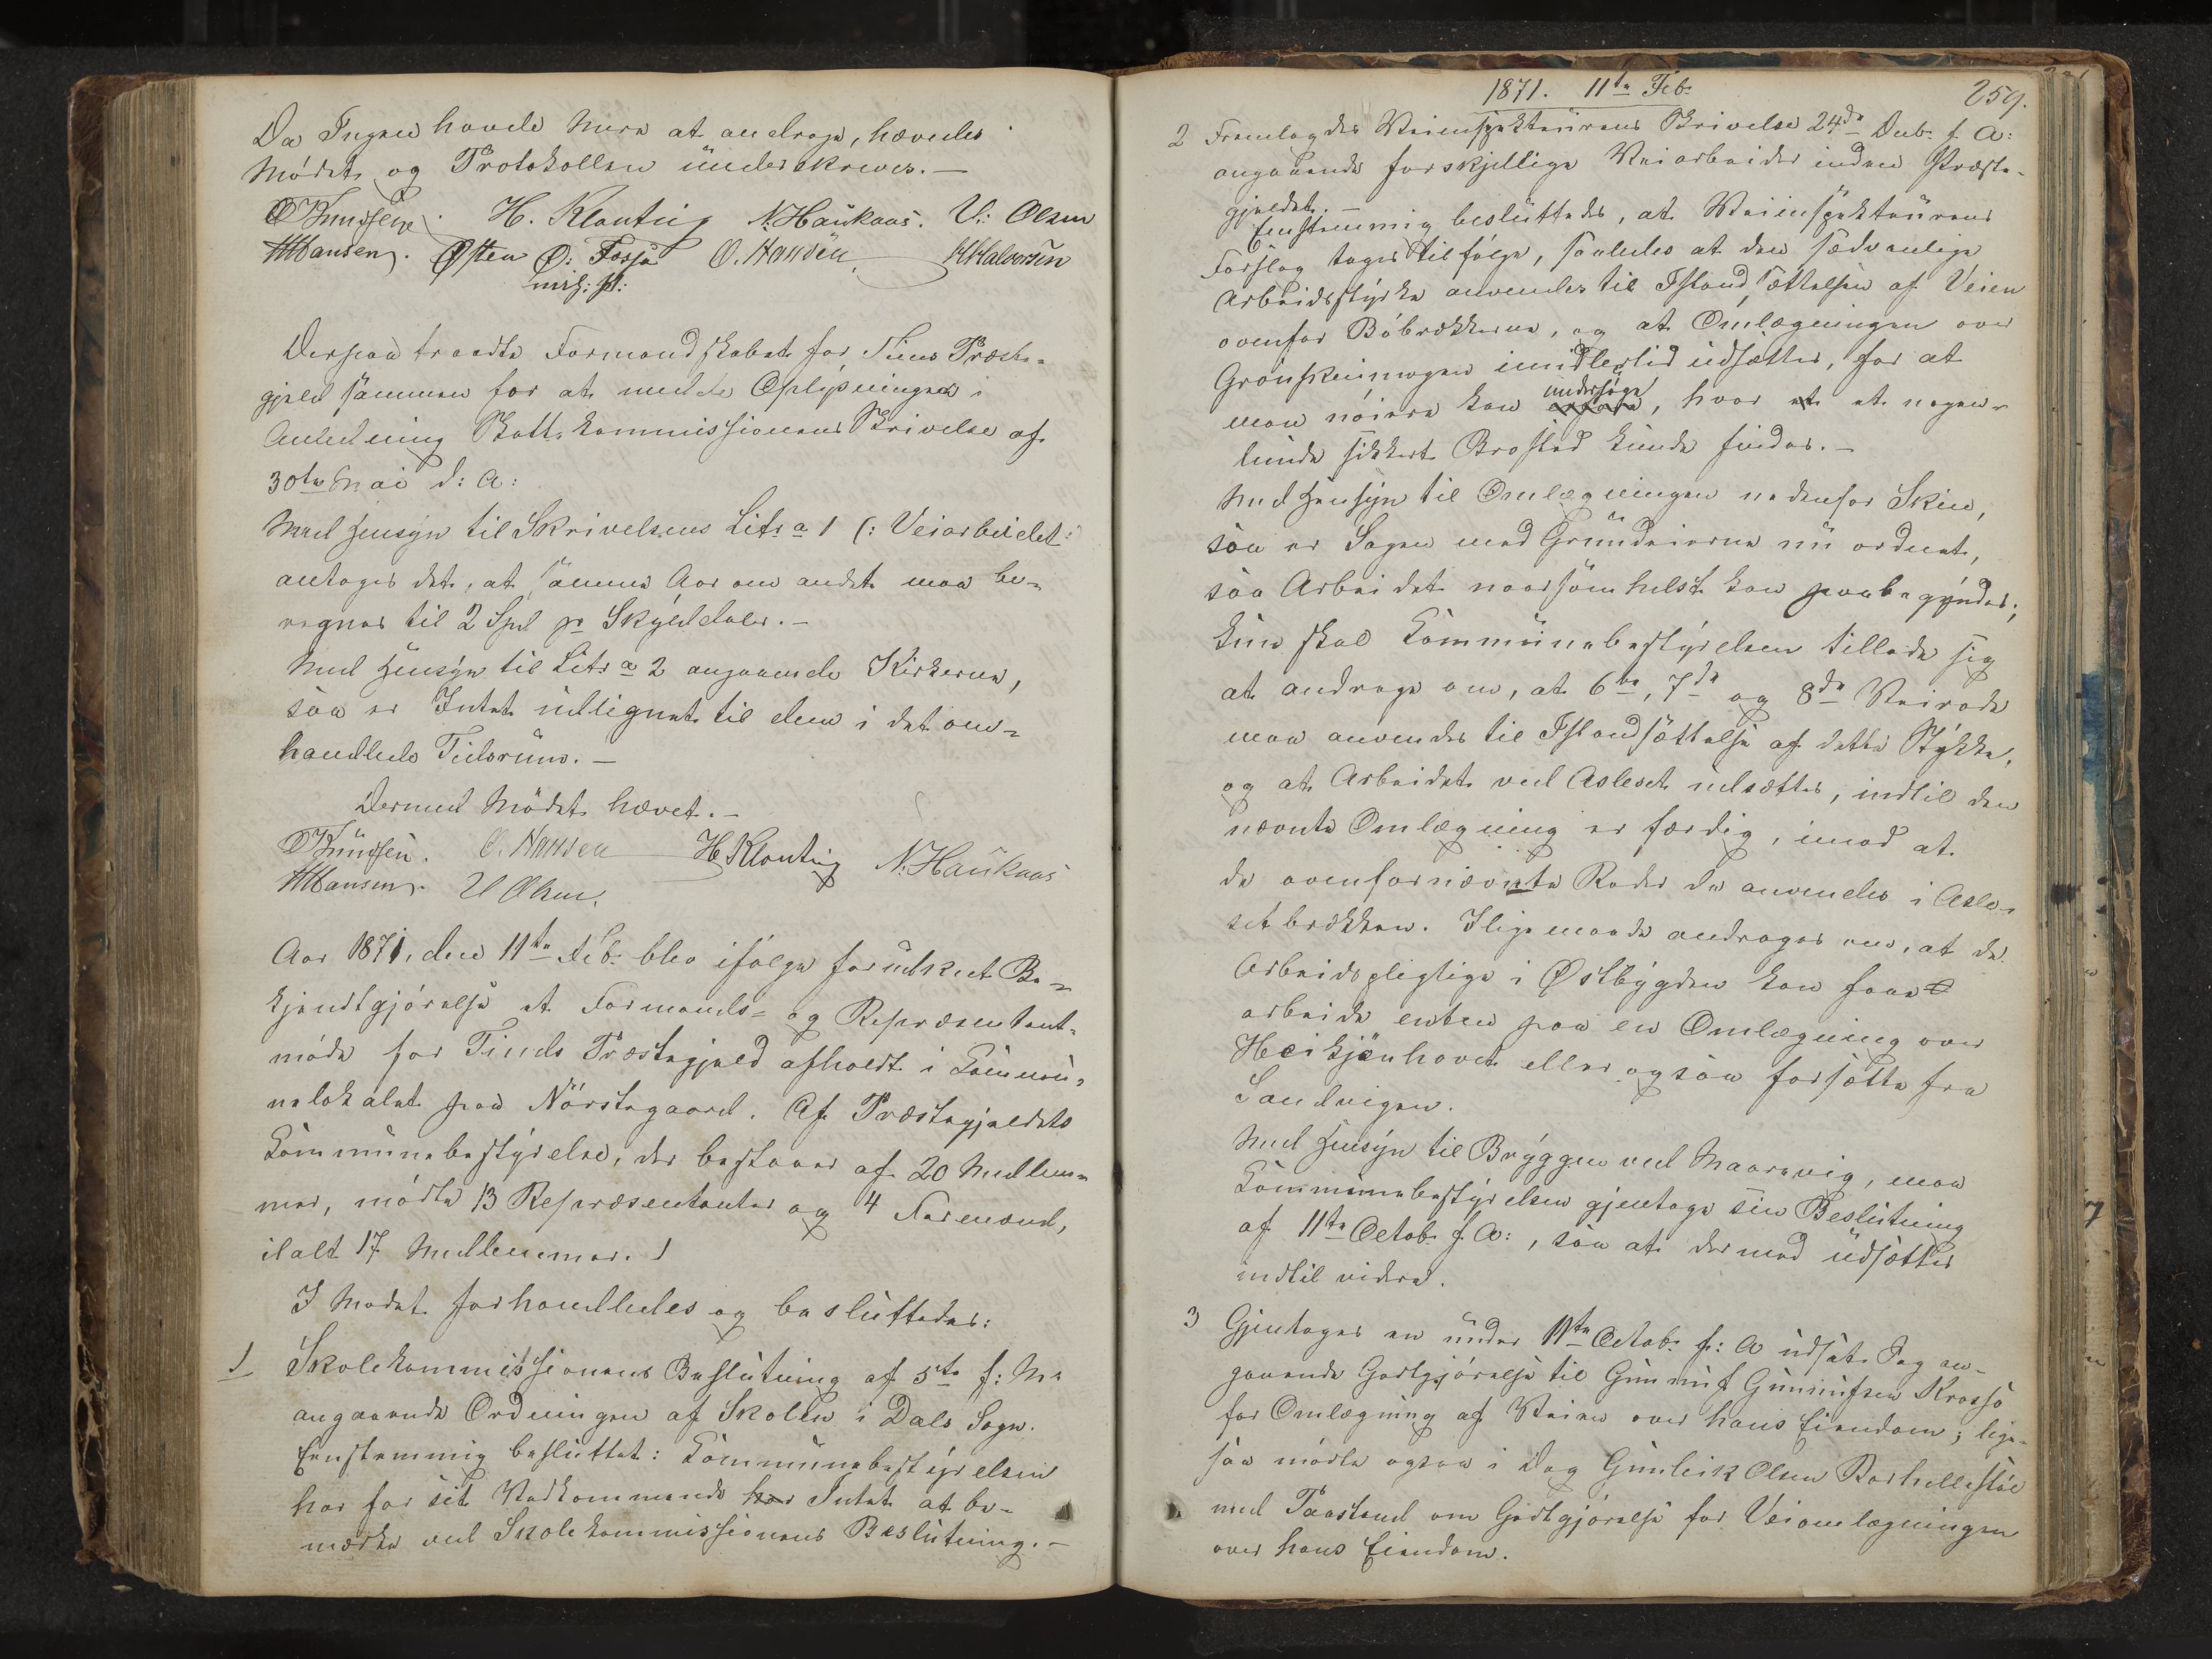 Da Ingen havde mere at andrage, hævedes
Mödet og Protokollen underskreves. —
O Knudsen. H. Klonteig N. Haukaas. U: Olsen
H Hansen. Østen O: Fosso O. Hansen H Halvorsen
m:p:
Derpaa traadte Formandskabet for Tinns Præste-
gjeld sammen for at meddele Oplysninger i
Anledning Skattekommissionens Skrivelse af
30te Mai d: A:
Med Hensyn til Skrivelsens Litr. a 1 (: Veiarbeidet :)
antoges det, at samme Aar om andet maa be-
regnes til 2 Spd pr Skylddaler. —
Med Hensyn til Litr a 2 angaaende Kirkerne,
saa er Intet udlignet til dem i det om-
handlede Tidsrum. —
Dermed Mödet hævet. —
O Knudsen. O. Hansen H Klonteig N. Haukaas
H Hansen. U Olsen.
Aar 1871, den 11te Feb. blev ifölge forudskeet Be-
kjendtgjörelse et Formands- og Repræsentant-
möde for Tinds Præstegjeld afholdt i Kommu-
nelokalet paa Nörstegaard. Af Præstegjeldets
Kommunebestyrelse, der bestaaer af 20 Medlem-
mer, mödte 13 Repræsentanter og 4 Formænd,
ialt 17 Medlemmer.
I Mödet forhandledes og besluttedes:
1 Skolekommissionens Beslutning af 5te f: M:
angaaende Ordningen af Skolen i Dals Sogn.
Eenstemmig besluttet: Kommunebestyrelsen
har for sit Vedkommende har Intet at be-
mærke ved Skolekommissionens Beslutning. —
1871. 11te Feb. 259.
2 Fremlagdes Veiinspekteurens Skrivelse 24de Deb. f. A:
angaaende forskjellige Veiarbeider inden Præste-
gjeldet. —
Eenstemmig besluttedes, at Veiinspekteurens
Forslag toges tilfölge, saaledes at den sædvanlige
Arbeidsstyrke anvendes til Istandsættelsen af Veien
ovenfor Böbrækkerne, og at Omlægningen over
Grönskeimogen imidlertid udsættes, for at
man nöiere kan erfare undersöge, hvor et et nogen-
lunde sikkert Brosted kunde findes. —
Med Hensyn til Omlægningen nedenfor Skien,
saa er Sagen med Grundeierne nu ordnet,
saa Arbeidet naarsomhelst kan paabegyndes;
kun skal Kommunebestyrelsen tillade sig
at andrage om, at 6te, 7de og 8de Veirode
maa anvendes til Istandsættelse af dette Stykke,
og at Arbeidet ved Asleset udsættes, indtil den
nævnte Omlægning er færdig, imod at
de ovenfornævnte Roder da anvendes i Asle-
setbrækken. Iligemaade andrages om, at de
Arbeidspligtige i Østbygden kan faae
arbeide enten paa en Omlægning over
Heikjenhovet eller ogsaa fortsætte fra
Sandvigen.
Med Hensyn til Bryggen ved Maarevig, maa
Kommunebestyrelsen gjentage sin Beslutning
af 11te Octob. f. A:, saa at dermed udsættes
indtil videre.
3 Gjentages en under 11te Octob: f: A udsat Sag an-
gaaende Godtgjörelse til Gunnuf Gunnufsen Krosso
for Omlægning af Veien over hans Eiendom; lige-
saa mödte ogsaa i Dag Gunleik Olsen
med Paastand om Godtgjörelse for Veiomlægningen
over hans Eiendom.